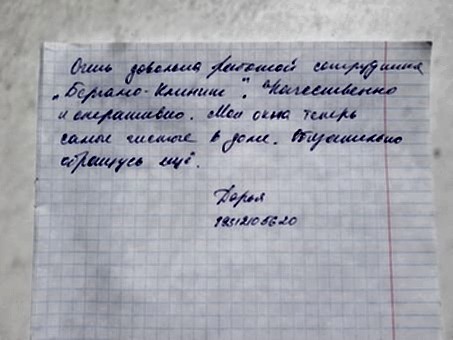 Очень довольна работой сотрудника
„Бергамо-Клининг". Качественно
и оперативно. Мои окна теперь
самые чистые в доме. Обязательно
обращусь ещё.
Дарья